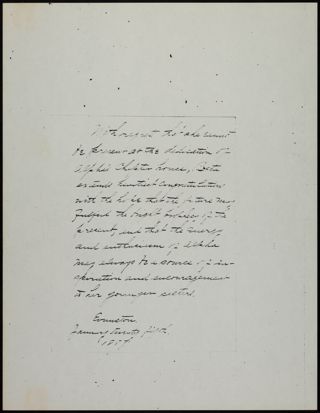 With regret that she cannot
be present at the dedication of
Alpha's Chapter house, Beta
extends heartiest congratulations
with the hope that the future may
fulfill the bright of the
present, and that the energy
and enthusiasm of Alpha
may always be a source of in-
spiration and encouragement
to her younger sisters.
Evanston,
January